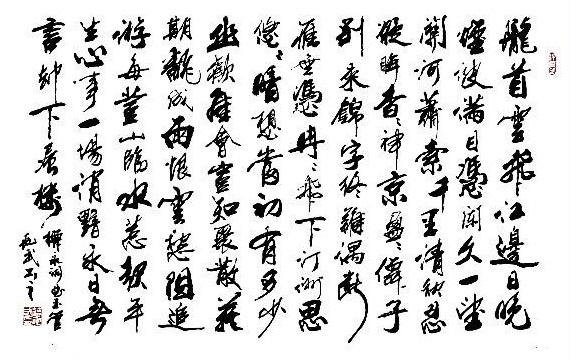 隴首雲飛江邊日晚
煙波滿目憑闌久一望
關河蕭索千里清秋忍
凝眸杳杳神京盈盈僊子
別來錦字終難偶斷
雁無憑冉冉飛下汀洲思
悠悠暗想當初有多少
幽歡佳會豈知聚散難
期翻成雨恨雲愁阻追
游每登山臨水惹起平
生心事一場消黯永日無
言卻下層樓
柳永詞曲玉管